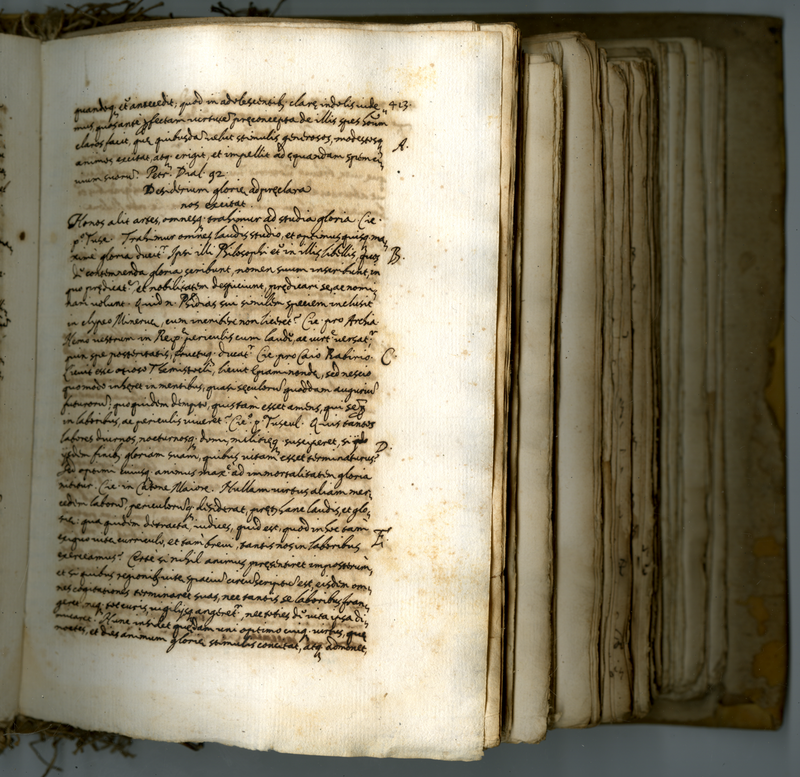 quandoq; et antecedit, quod in adolescentib; clarę indolis uide 413.
mus quos ante pfectam virtutē pręconcepta de illis spes hoīm
claros facit, quę quibusdā uelut stimulis generosos, modestosq; A.
animos excitat, atq; erigit, et impellit ad equandam spem ci
uium suorū. Petr. Dial. 92.
Desiderium glorię, ad pręclara
nos excitat.
Honos alit artes, omnesq; trahimur ad studia gloria Cic.
p.° Tusc. Trahimur omnes laudis studio, et optimus quisq; ma,
xime gloria ducit.r Ipsi illi Philosophi et in illis libellis, quos B.
dū contemnenda gloria scribunt, nomen suum inscribunt, in
quo prędicat.r et nobilitatem despiciunt, prędicari se, ac nomi,
nari volunt. Quid n. Phidias sui similem speciem inclusit
in clypeo Mineruę, cum inscribere non liceret? Cic. pro Archa
Nemo uestrum in Reip. periculis cum laude, ac uirt.e versat.r,
quin spe posteritatis, fructuq; ducat.r Cic. pro Caio Rabirio. C.
Licuit esse otioso Themistocli, licuit Epaminondę, sed nescio
quomodo inhęret in mentibus, quasi seculorū quoddam auguriū
futurorū: quo quidem dempto, quis tam esset amens, qui semp
in laboribus, ac periculis viueret? Cic. p.° Tuscul. Quis tantos
labores diurnos, nocturnosq; domi, militięq; susciperet, si D.
ijsdem finib; gloriam suam, quibus vitam esset terminaturus?
Sed optimi cuiusq; animus max.e ad immortalitatem gloria
nititur. Cic. in Catone Maiore. Nullam virtus aliam mer,
cedem laborū, periculorūq; desiderat, pręter hanc laudis, et glo,
rię: qua quidem detracta, iudices, quid est, quod in hoc tam E.
exiguo vitę curriculo, et tam breui, tantis nos in laboribus
exerceamus? Certe si nihil animus pręsentiret in posterum,
et si quibus regionib; uitę spaciū circūscriptū est, eisdem om,
nes cogitationes terminaret suas, nec tantis se laboribus fran,
geret, neq; tot curis, vigilijsq; angeret.r, nec toties dū uita ipsa di,
micaret. Nunc insidet quędam uni optimo cuiq; virtus, quę
noctes, et dies animum glorię stimulis concitat, atq; admonet,